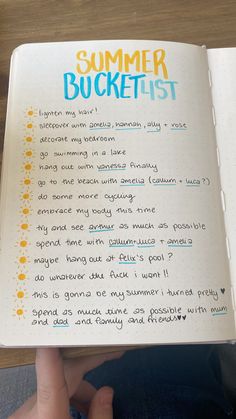 SUMMER
BUCKETLIST
lighten my hair!
sleepover with amelia, hannah, ally + rose
decorate my bedroom
go swimming in a lake
hang out with vanessa finally
go to the beach with amelia (callum + luca?)
do some more cycling
embrace my body this time
try and see arthur as much as possible
spend time with callum+luca + amelia
maybe hang out at felix's pool?
do whatever the fuck i want!!
this is gonna be my summer i turned pretty ♥
spend as much time as possible with mum
and dad and family and friends♥♥